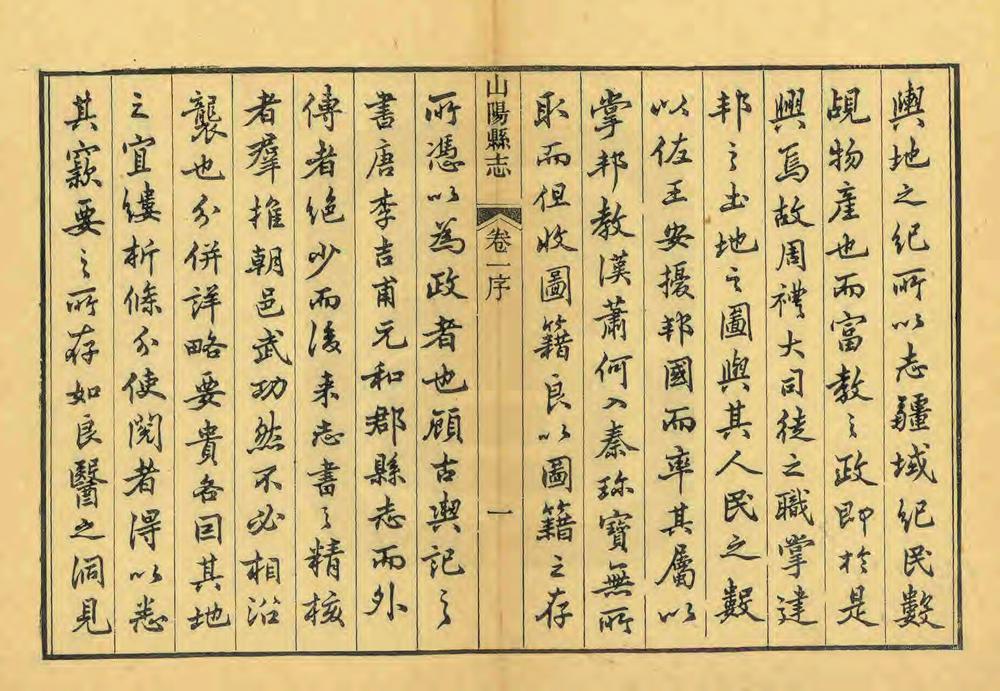 輿地之紀所以志疆域紀民數
覘物產也而富教之政即於是
興焉故周禮大司徒之職掌建
邦之土地之圖與其人民之數
以佐王安擾邦國而率其屬以
掌邦教漢蕭何入秦珎寶無所
取而但收圖籍良以圖籍之存
山陽縣志
卷一序
一
所憑以為政者也顧古輿記之
書唐李吉甫元和郡縣志而外
傳者絕少而後来志書之精核
者羣推朝邑武功然不必相沿
襲也分併詳略要貴各因其地
之宜縷析條分使閱者得以悉
其窾要之所存如良醫之洞見